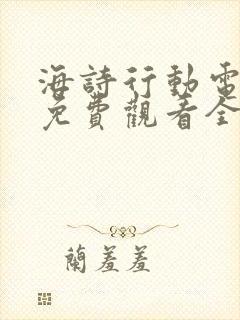 海詩行動電
免費觀看全
蘭羞羞